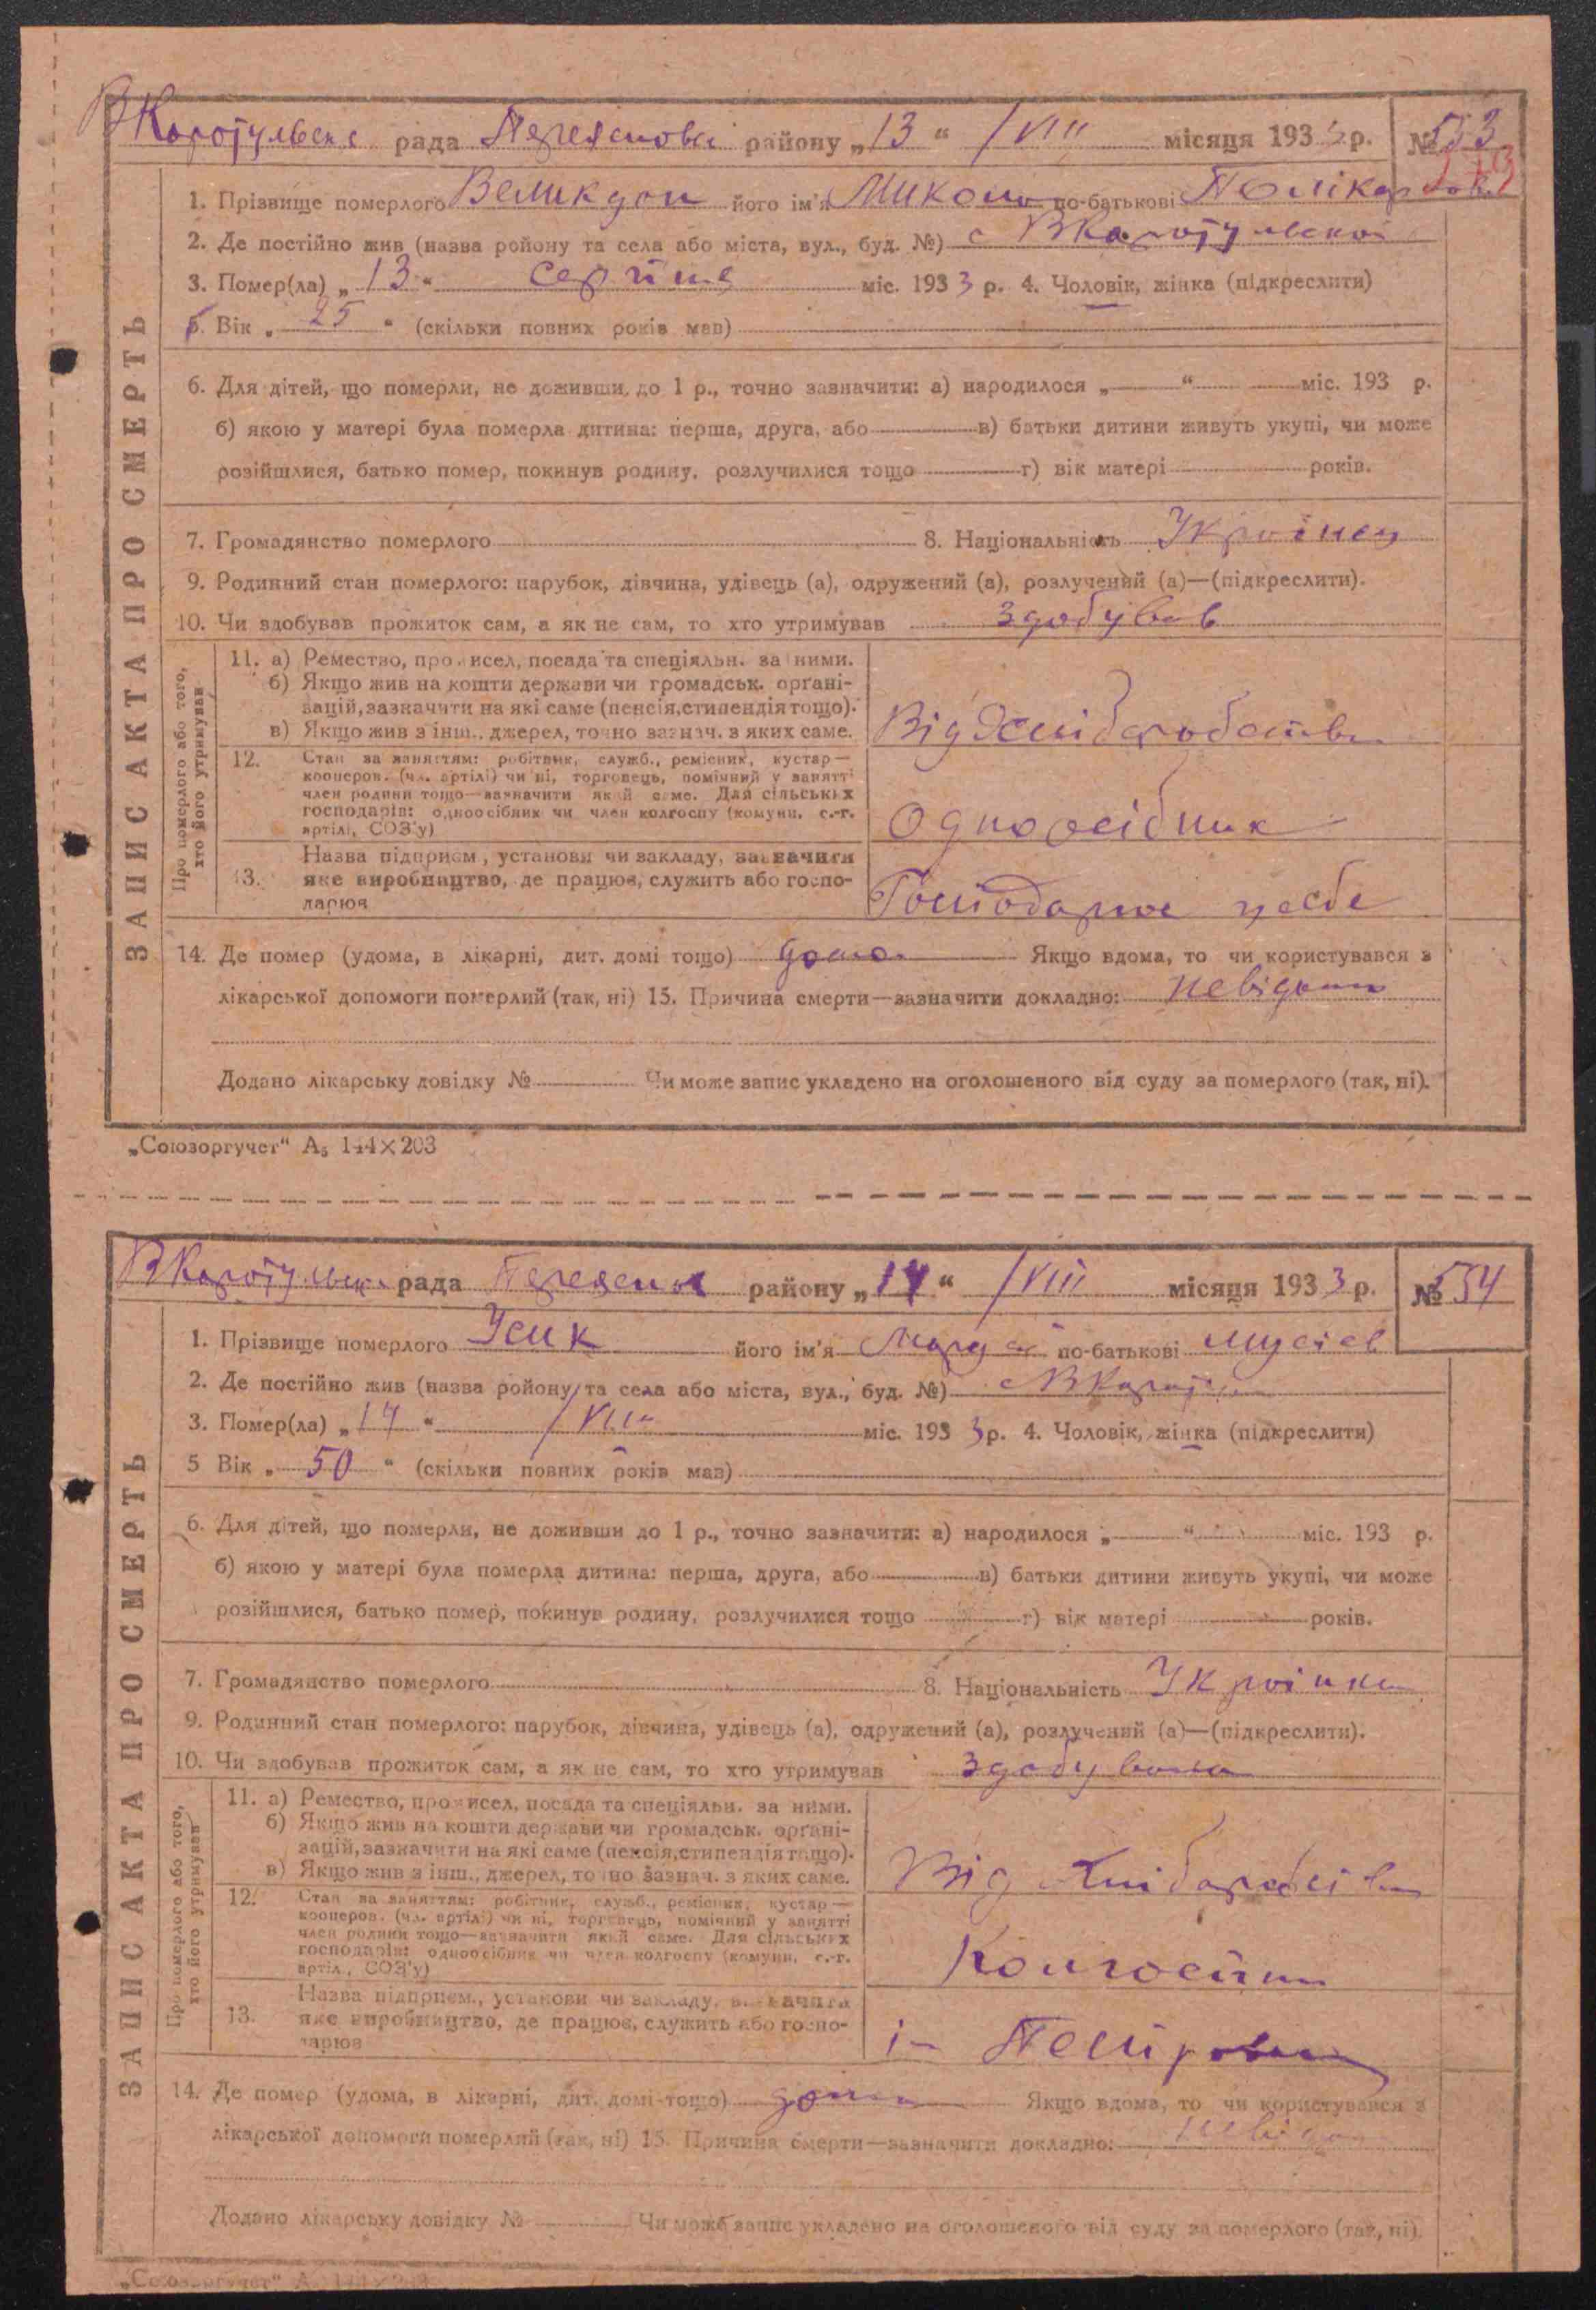 ВКаротульська рада Переяслові району „13“ /VIII місяця 1933 р. № 553
1. Прізвище померлого Великдан його ім'я Микола по-батькові Полікар
2. Де постійно жив (назва ройону та села або міста, вул., буд. №) с ВКаротульської
3. Помер(ла) „13“ Серпня міс. 1933 р. 4. Чоловік, жінка (підкреслити)
5. Вік „25“ (скільки повних років мав)
6. Для дітей, що померли, не доживши до 1 р., точно зазначити: а) народилося „ “ міс. 193 р.
б) якою у матері була померла дитина: перша, друга, або в) батьки дитини живуть укупі, чи може
розійшлися, батько помер, покинув родину, розлучилися тощо г) вік матері років.
7. Громадянство померлого 8. Національність Українец
9. Родинний стан померлого: парубок, дівчина, удівець (а), одружений (а), розлучений (а)—(підкреслити).
10. Чи здобував прожиток сам, а як не сам, то хто утримував здобував
ЗАПИС АКТА ПРО СМЕРТЬ
Про померлого або того, хто його утримував
11. а) Ремество, промисел, посада та спеціяльн. за ними.
б) Якщо жив на кошти держави чи громадськ. орґані-
зацій, зазначити на які саме (пенсія, стипендія тощо).
в) Якщо жив з інш. джерел, точно зазнач. з яких саме.
Від Хліборобства
12. Стан за заняттям: робітник, служб., ремісник, кустар—
кооперов. (чл. артілі) чи ні, торговець, помічний у занятті
член родини тощо—зазначити який саме. Для сільських
господарів: одноосібник чи член колгоспу (комуни, с.-г.
артілі, СОЗ'у)
Одноосібник
13. Назва підприєм., установи чи закладу, зазначити
яке виробництво, де працює, служить або госпо-
дарює
Господарює усебе
14. Де помер (удома, в лікарні, дит. домі тощо) дома Якщо вдома, то чи користувався з
лікарської допомоги померлий (так, ні) 15. Причина смерти—зазначити докладно: невідома
Додано лікарську довідку № Чи може запис укладено на оголошеного від суду за померлого (так, ні).
„Союзоргучет“ А₅ 144×203
ВКаротульська рада Переяслів району „14“ /VIII місяця 1933 р. № 554
1. Прізвище померлого Усик його ім'я по-батькові Мусієв
2. Де постійно жив (назва ройону та села або міста, вул., буд. №) с ВКарату
3. Помер(ла) „14“ /VIII міс. 1933 р. 4. Чоловік, жінка (підкреслити)
5 Вік „50“ (скільки повних років мав)
6. Для дітей, що померли, не доживши до 1 р., точно зазначити: а) народилося „ “ міс. 193 р.
б) якою у матері була померла дитина: перша, друга, або в) батьки дитини живуть укупі, чи може
розійшлися, батько помер, покинув родину, розлучилися тощо г) вік матері років.
7. Громадянство померлого 8. Національність Українка
9. Родинний стан померлого: парубок, дівчина, удівець (а), одружений (а), розлучений (а)—(підкреслити).
10. Чи здобував прожиток сам, а як не сам, то хто утримував здобувала
ЗАПИС АКТА ПРО СМЕРТЬ
Про померлого або того, хто його утримував
11. а) Ремество, промисел, посада та спеціяльн. за ними.
б) Якщо жив на кошти держави чи громадськ. орґані-
зацій, зазначити на які саме (пенсія, стипендія тощо).
в) Якщо жив з інш. джерел, точно зазнач. з яких саме.
Від Хліборобства
12. Стан за заняттям: робітник, служб., ремісник, кустар—
кооперов. (чл. артілі) чи ні, торговець, помічний у занятті
член родини тощо—зазначити який саме. Для сільських
господарів: одноосібник чи член колгоспу (комуни, с.-г.
артілі, СОЗ'у)
Колгоспни
13. Назва підприєм., установи чи закладу, зазначити
яке виробництво, де працює, служить або госпо-
дарює
ім Петровськ
14. Де помер (удома, в лікарні, дит. домі тощо) дома Якщо вдома, то чи користувався з
лікарської допомоги померлий (так, ні) 15. Причина смерти—зазначити докладно: невідо
Додано лікарську довідку № Чи може запис укладено на оголошеного від суду за померлого (так, ні).
„Союзоргучет“ А₅ 144×203